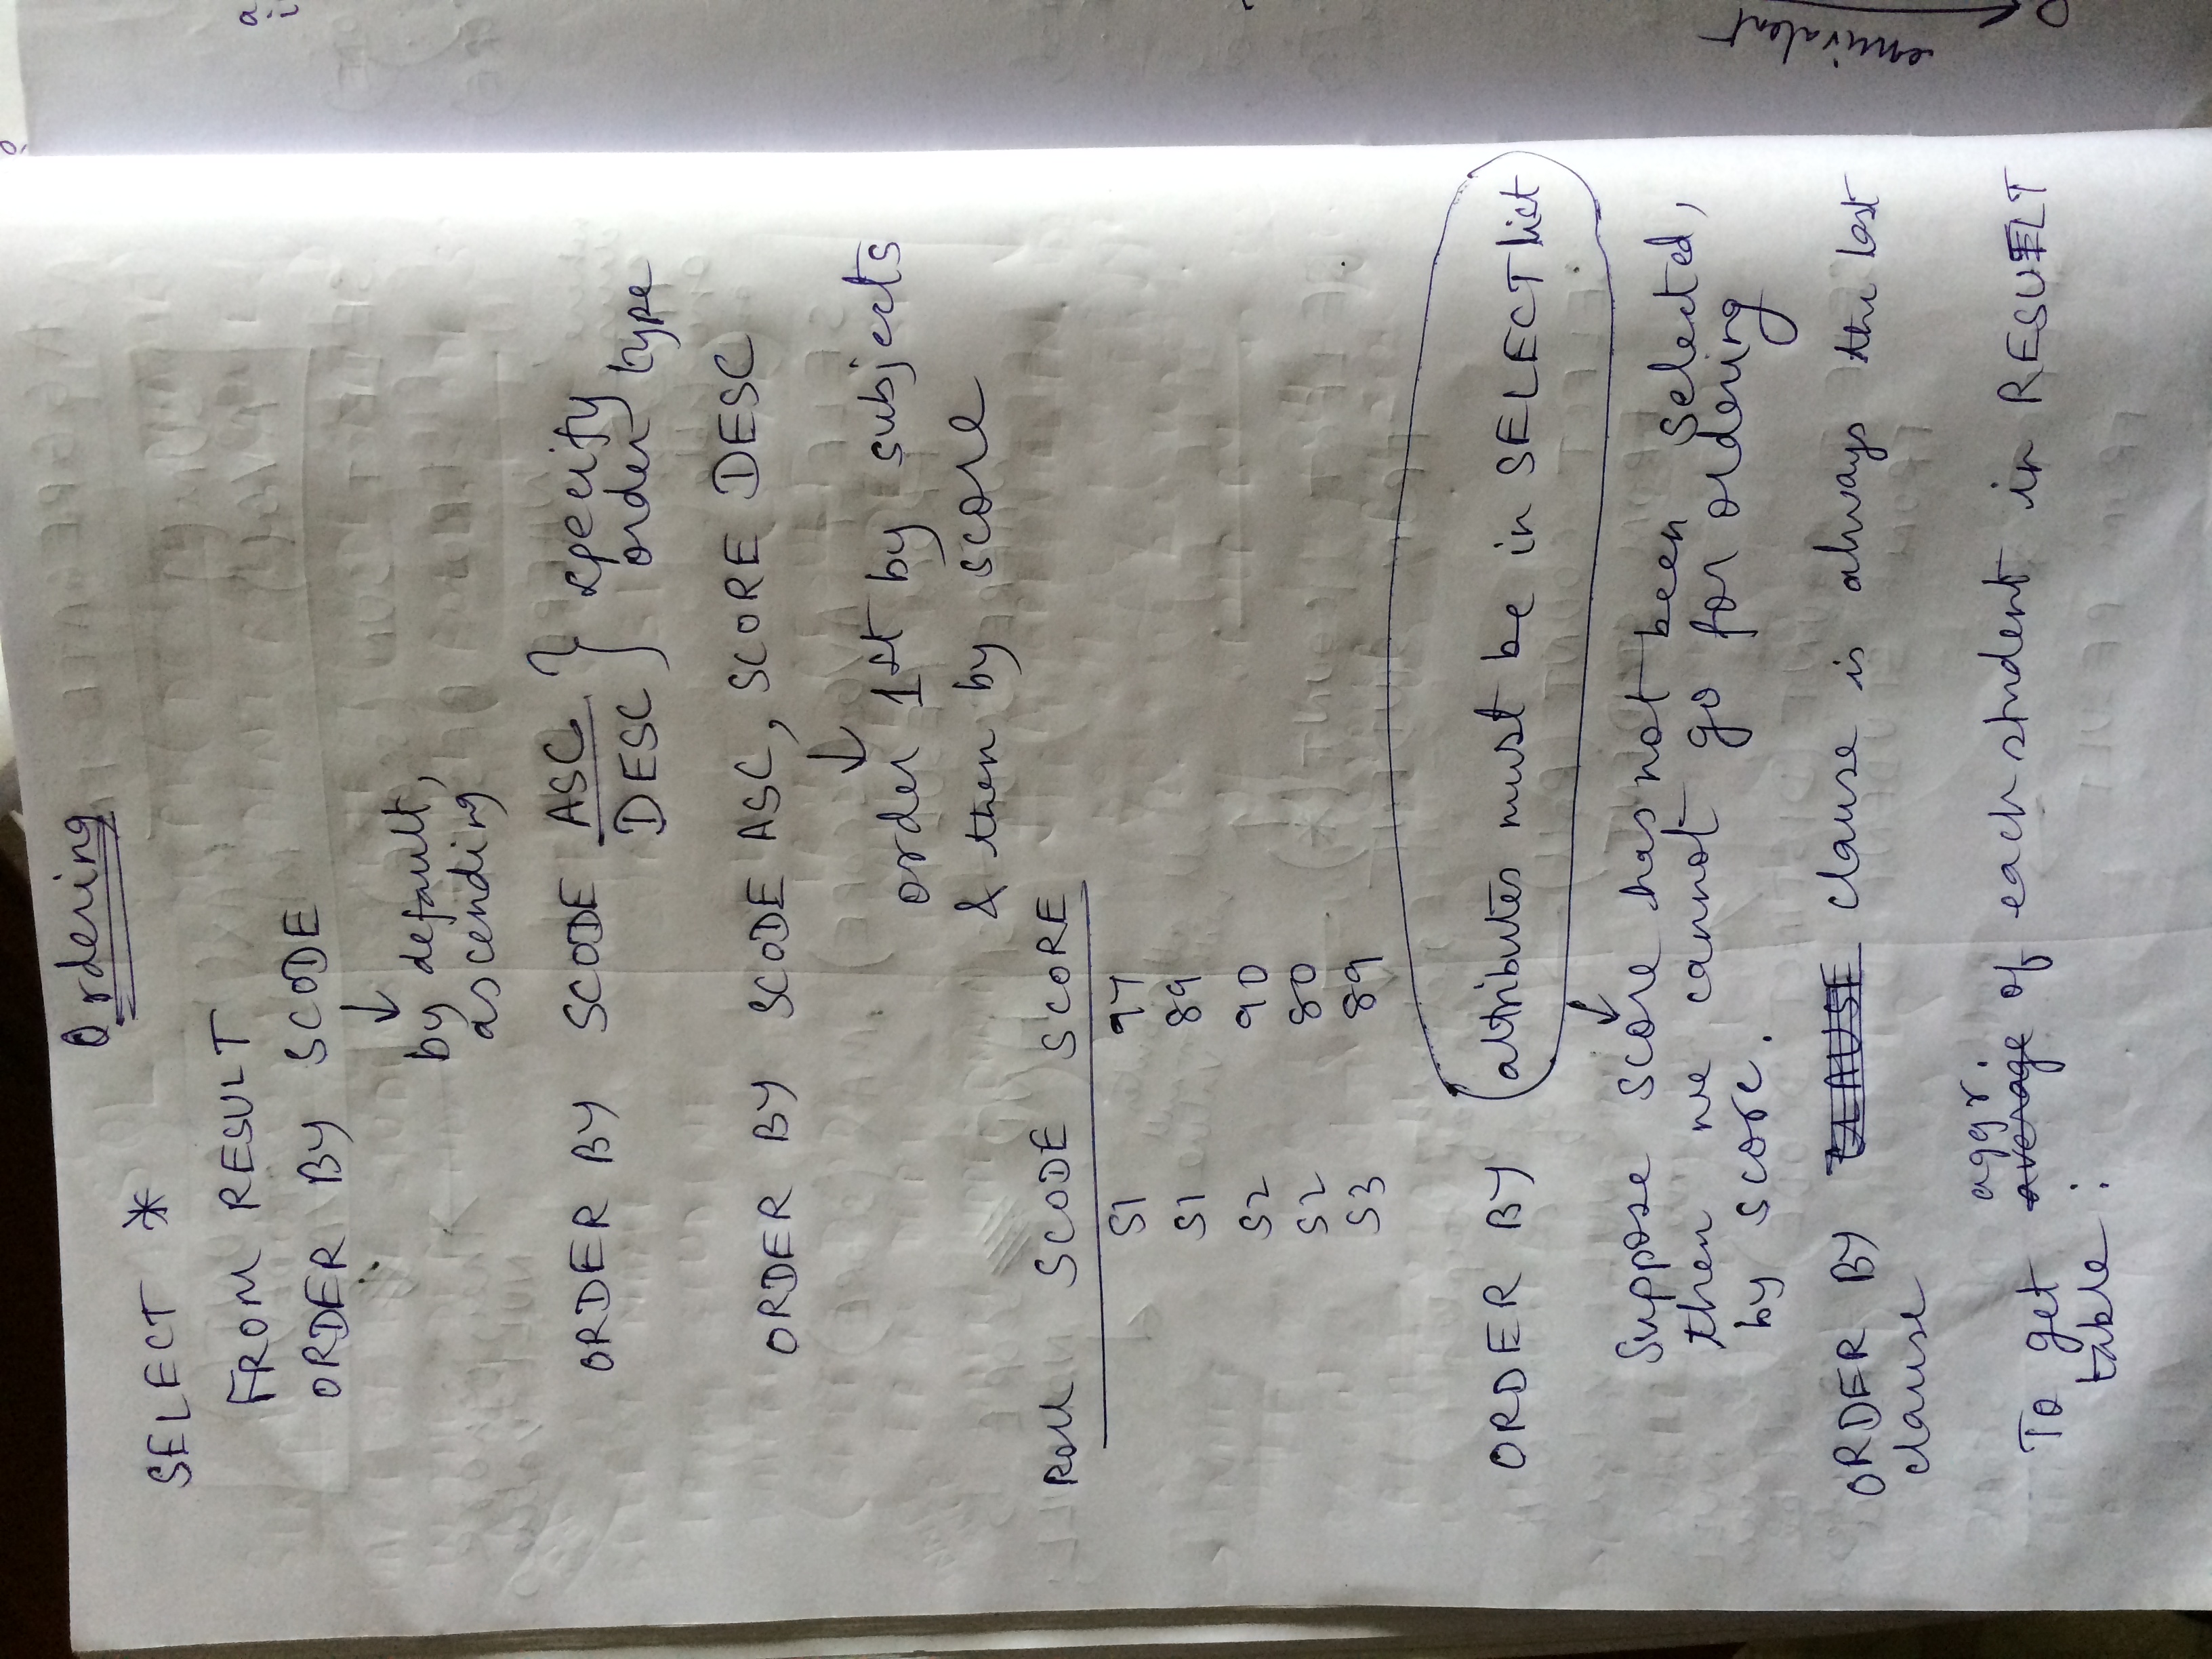 Ordering
SELECT *
FROM RESULT
ORDER BY SCODE
↓
by default,
ascending
ORDER BY SCODE ASC } specify
DESC order type
ORDER BY SCODE ASC, SCORE DESC
↓
order 1st by subjects
& then by score
Roll SCODE SCORE
S1 97
S1 89
S2 90
S2 80
S3 89
ORDER BY (attributes must be in SELECT list
↓
Suppose score has not been selected,
then we cannot go for ordering
by score.
ORDER BY CLAUSE clause is always the last
clause
aggr.
To get average of each student in RESULT
table :